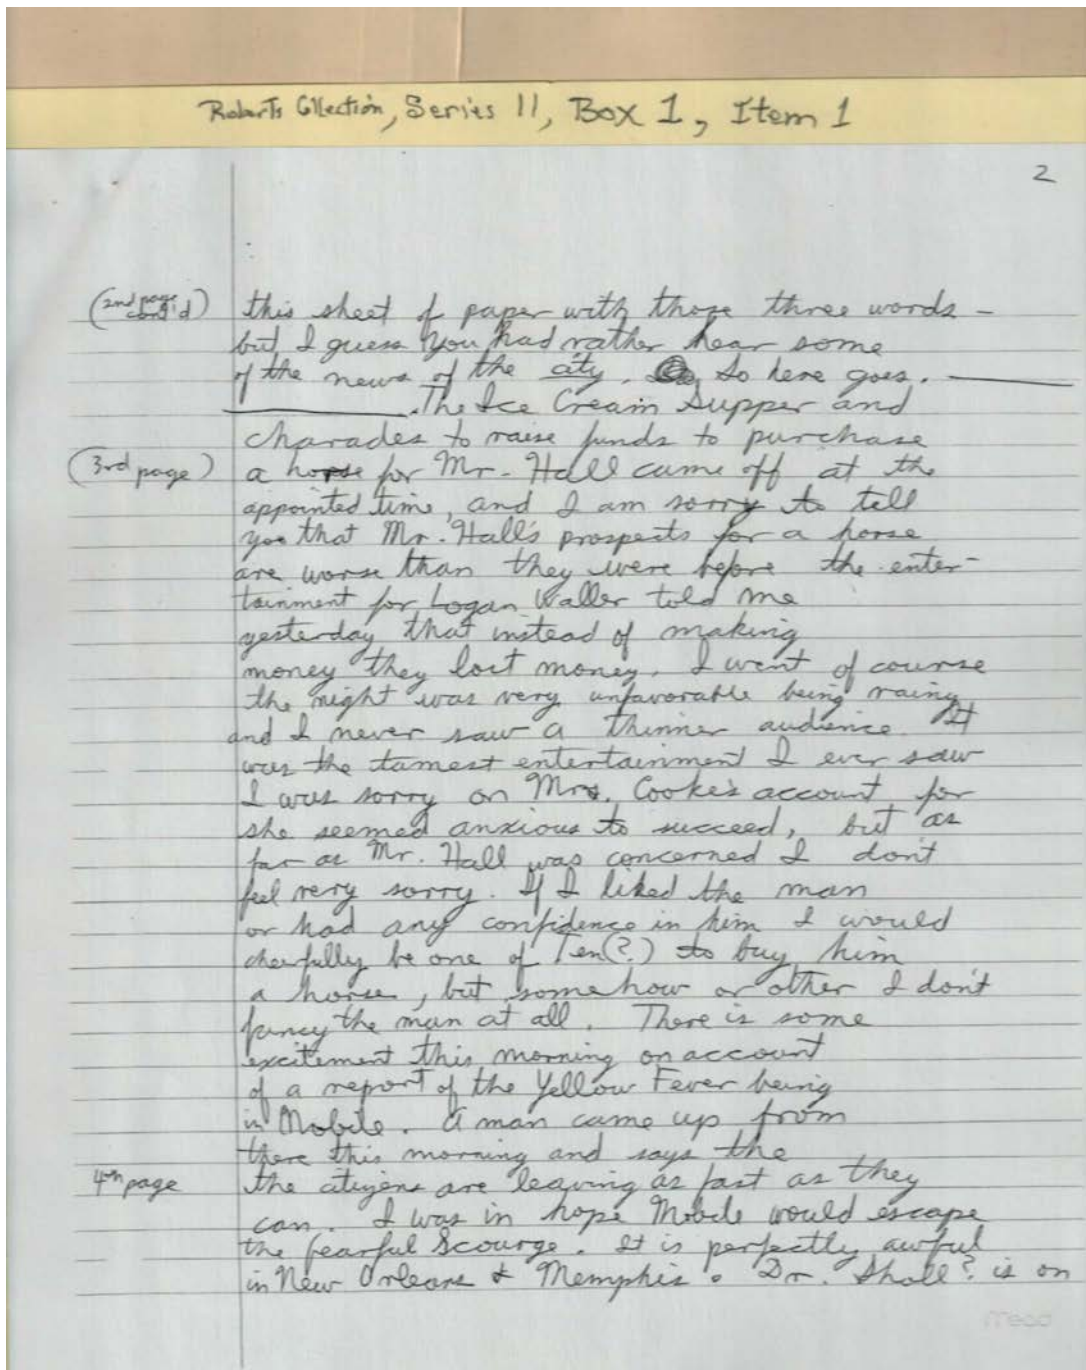 Roberts Collection, Series 11, Box 1, Item 1
2
(2nd page cont'd) this sheet of paper with those three words -
but I guess you had rather hear some
of the news of the city. So here goes.
The Ice Cream Supper and
charades to raise funds to purchase
(3rd page) a horse for Mr. Hall came off at the
appointed time, and I am sorry to tell
you that Mr. Hall's prospects for a horse
are worse than they were before the enter-
tainment for Logan Waller told me
yesterday that instead of making
money they lost money. I went of course
the night was very unfavorable being rainy
and I never saw a thinner audience. It
was the tamest entertainment I ever saw
I was sorry on Mrs. Cooke's account for
she seemed anxious to succeed, but as
far as Mr. Hall was concerned I don't
feel very sorry. If I liked the man
or had any confidence in him I would
cheerfully be one of Ten(?) to buy him
a horse, but somehow or other I don't
fancy the man at all. There is some
excitement this morning on account
of a report of the Yellow Fever being
in Mobile. A man came up from
there this morning and says the
4th page the citizens are leaving as fast as they
can. I was in hope Mobile would escape
the fearful Scourge. It is perfectly awful
in New Orleans & Memphis. Dr. Sholl? is on
Mead